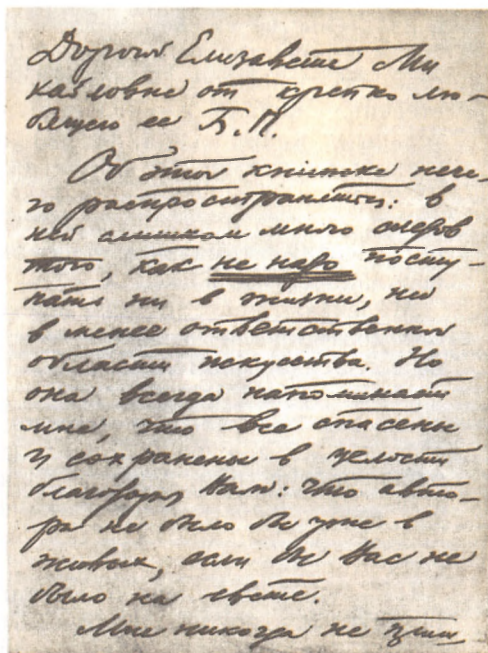 Дорогой Елизавете Ми
хайловне от крепко лю-
бящего ее Б. П.
Об этой книжке нече-
го распространяться: в
ней слишком много следов
того, как не надо посту-
пать ни в жизни, ни
в менее ответственной
области искусства. Но
она всегда напоминает
мне, что все спасены
и сохранены в целости
благодаря Вам: что авто-
ра не было бы уже в
живых, если бы Вас не
было на свете.
Мне никогда не